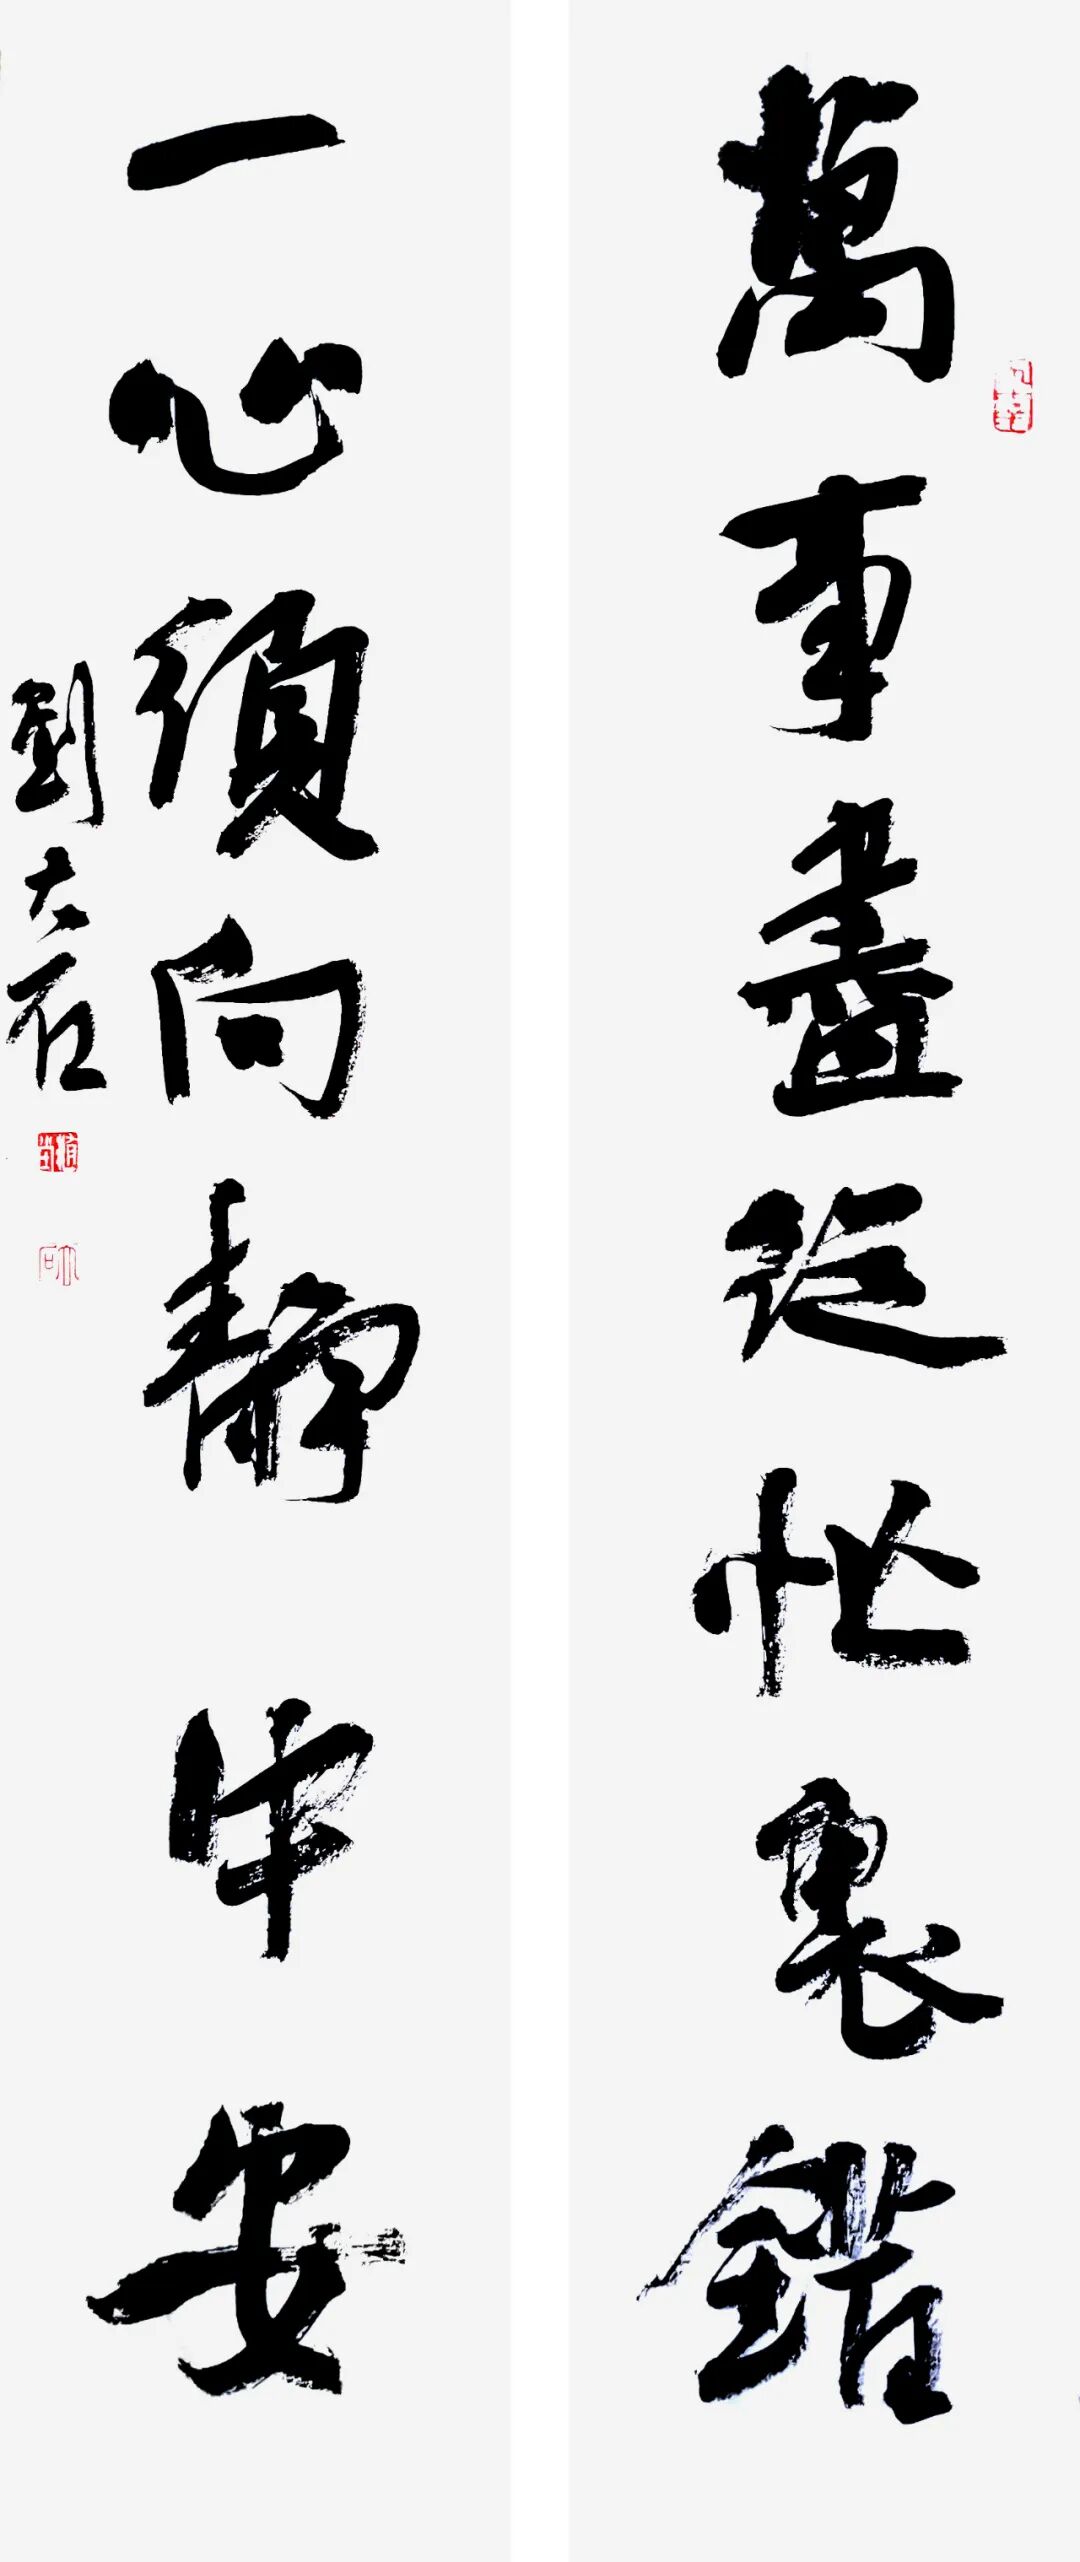 萬事盡從忙裏錯
一心須向靜中安
劉大石